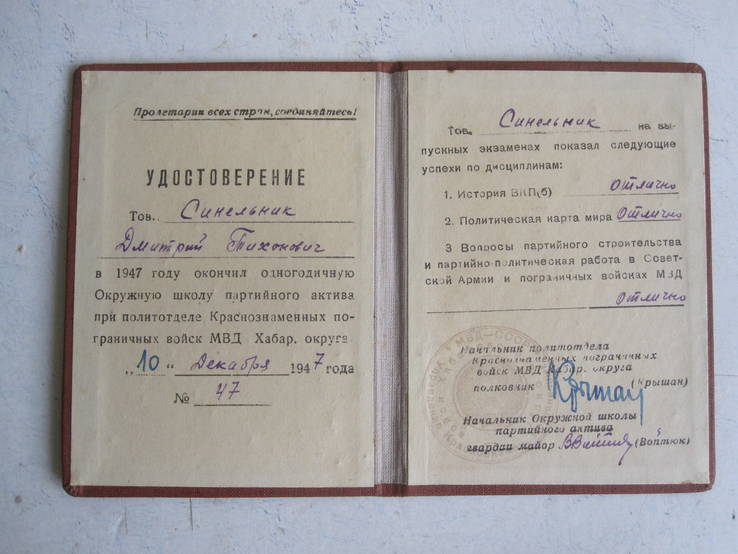 Пролетарии всех стран, соединяйтесь!
УДОСТОВЕРЕНИЕ
Тов. Синельник
Дмитрий Тихонович
в 1947 году окончил одногодичную
Окружную школу партийного актива
при политотделе Краснознаменных по-
граничных войск МВД Хабар. округа
„10" Декабря 1947 года
№ 47
Тов. Синельник на вы-
пускных экзаменах показал следующие
успехи по дисциплинам:
1. История ВКП(б) Отлично
2. Политическая карта мира Отлично
3 Вопросы партийного строительства
и партийно-политическая работа в Совет-
ской Армии и пограничных войсках МВД
Отлично
Начальник политотдела
Краснознаменных пограничных
войск МВД Хабар. округа
полковник (Крышан)
Начальник Окружной школы
партийного актива
гвардии майор (Войтюк)
МВД СССР